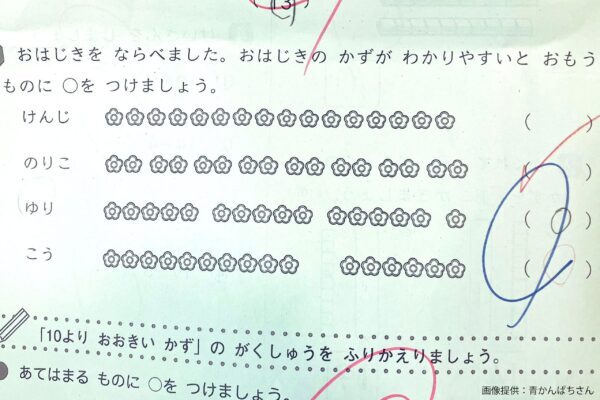 13
おはじきを ならべました。おはじきの かずが わかりやすいと おもう
ものに ○を つけましょう。
けんじ ( )
のりこ ( )
ゆり ( ○ )
こう ( )
「10より おおきい かず」の がくしゅうを ふりかえりましょう。
● あてはまる ものに ○を つけましょう。
画像提供：青かんぱちさん